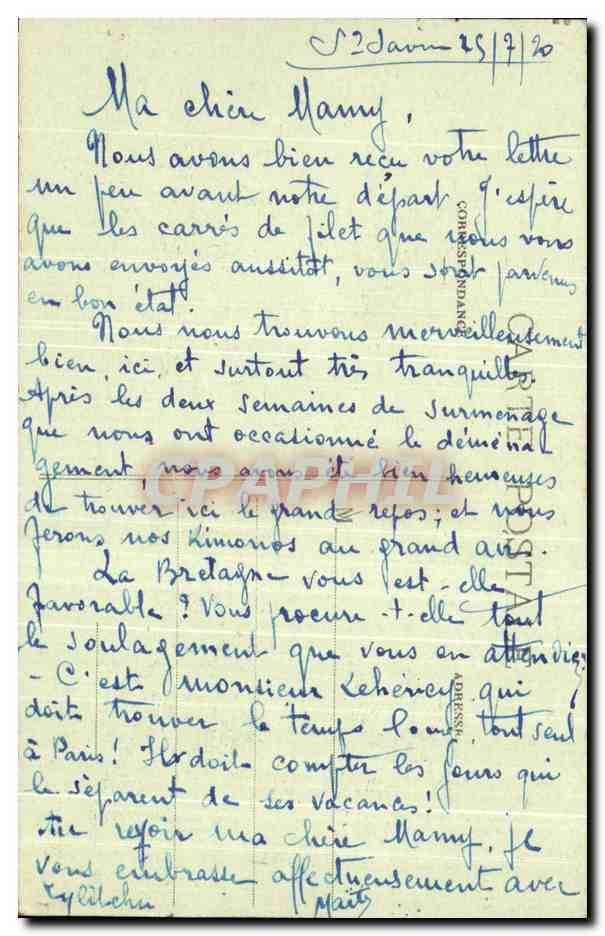 St Savin 25/7/20
Ma chère Mamy,
Nous avons bien reçu votre lettre
un peu avant notre départ J'espère
que les carrés de filet que nous vous
avons envoyés aussitôt, vous sont parvenus
en bon état.
Nous nous trouvons merveilleusement
bien, ici, et surtout très tranquilles.
Après les deux semaines de surmenage
que nous ont occasionné le déména
gement, nous avons été bien heureuses
de trouver ici le grand repos; et nous
ferons nos Kimonos au grand air.
La Bretagne vous est-elle
favorable? Vous procure-t-elle tout
le soulagement que vous en attendiez?
- C'est monsieur Lehéricy qui
doit trouver le temps long, tout seul
à Paris! Il doit compter les jours qui
le séparent de ses vacances!
Au revoir ma chère Mamy, je
vous embrasse affectueusement avec
CARTE POSTALE
CORRESPONDANCE
ADRESSE
CPAPHIL